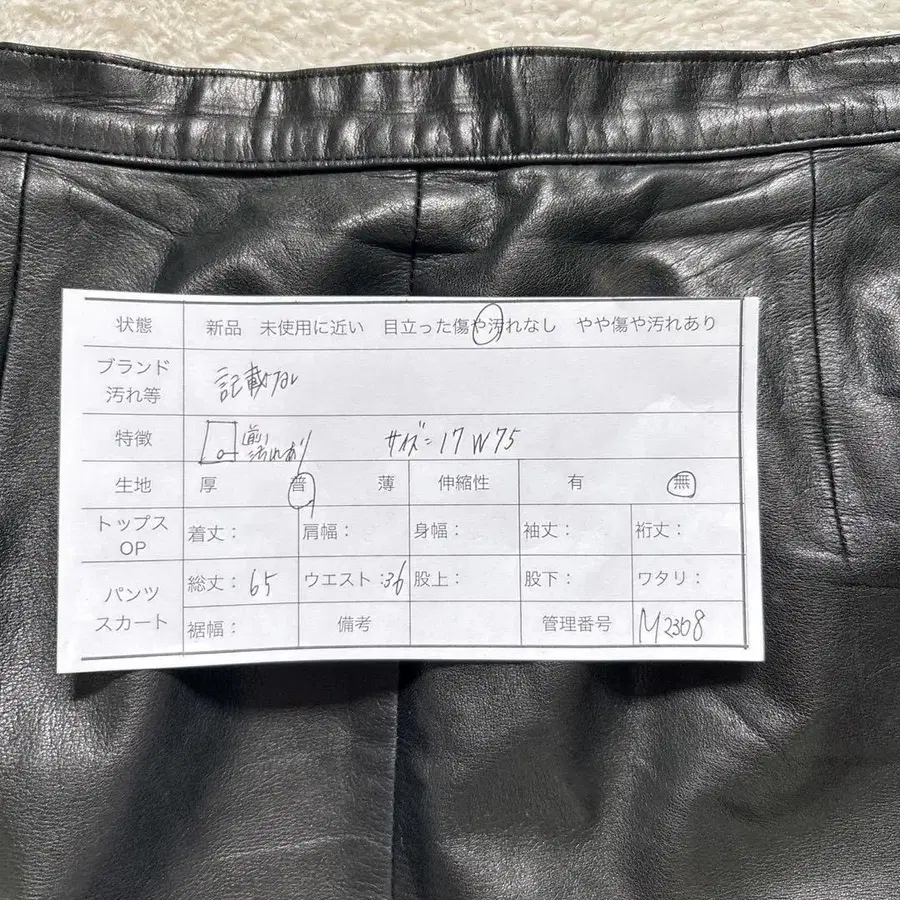 状態 新品 未使用に近い 目立った傷や汚れなし やや傷や汚れあり
ブランド
汚れ等
記載なし
特徴 前 汚れあり サイズ:17 W75
生地 厚 普 薄 伸縮性 有 無
トップス
OP
着丈: 肩幅: 身幅: 袖丈: 裄丈:
パンツ
スカート
総丈:65 ウエスト:36 股上: 股下: ワタリ:
裾幅: 備考 管理番号 M2368